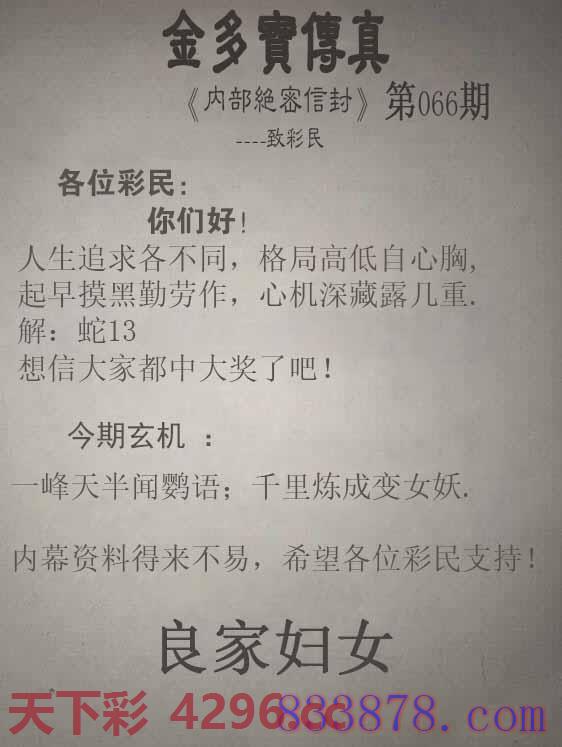 金多寶傳真
《内部絶密信封》第066期
----致彩民
各位彩民:
你们好!
人生追求各不同，格局高低自心胸,
起早摸黑勤劳作，心机深藏露几重.
解：蛇13
想信大家都中大奖了吧!
今期玄机 ：
一峰天半闻鹦语；千里炼成变女妖.
内幕资料得来不易，希望各位彩民支持!
良家妇女
天下彩 4296.cc 883878.com